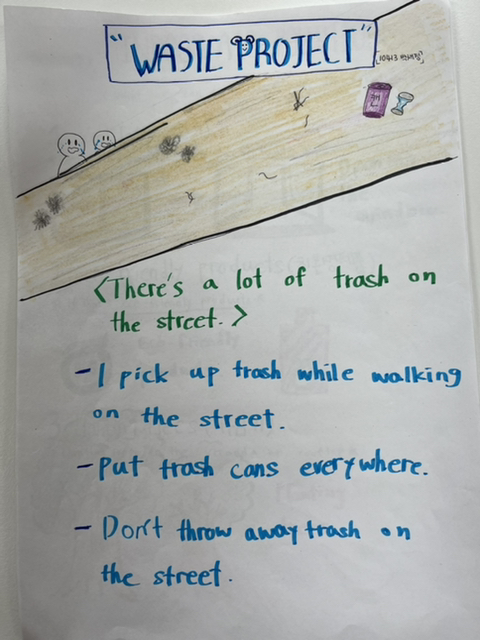 "WASTE PROJECT"
<There's a lot of trash on
the street.>
- I pick up trash while walking
on the street.
- Put trash cans everywhere.
- Don't throw away trash on
the street.